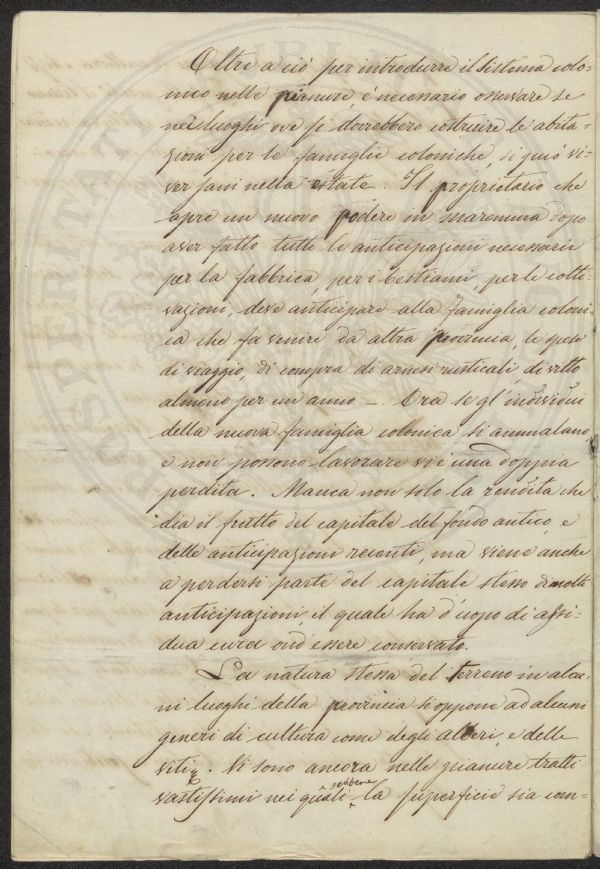 Oltre a ciò per introdurre il sistema colo=
nico nelle pianure, è necessario osservare se
nei luoghi ove si dovrebbero costruire le abita=
zioni per le famiglie coloniche, si può vi=
ver sani nella estate. Il proprietario che
apre un nuovo podere in maremma dopo
aver fatto tutte le anticipazioni necessarie
per la fabbrica, per i bestiami, per le colti=
vazioni, deve anticipare alla famiglia coloni=
ca che fa venire da altra provincia, le spese
di viaggio, di compra di arnesi rusticali, di vitto
almeno per un anno —. Ora se gl'individui
della nuova famiglia colonica si ammalano,
e non possono lavorare vi è una doppia
perdita. Manca non solo la rendita che
dia il frutto del capitale del fondo antico, e
delle anticipazioni recenti, ma viene anche
a perdersi parte del capitale stesso di molte
anticipazioni, il quale ha d'uopo di assi=
dua cura ond'essere conservato.
La natura stessa del terreno in alcu=
ni luoghi della provincia si oppone ad alcuni
generi di cultura come degli alberi, e delle
viti. Vi sono ancora nelle pianure tratti
vastissimi nei quali sebbene la superficie sia com=
PROSPERITATI